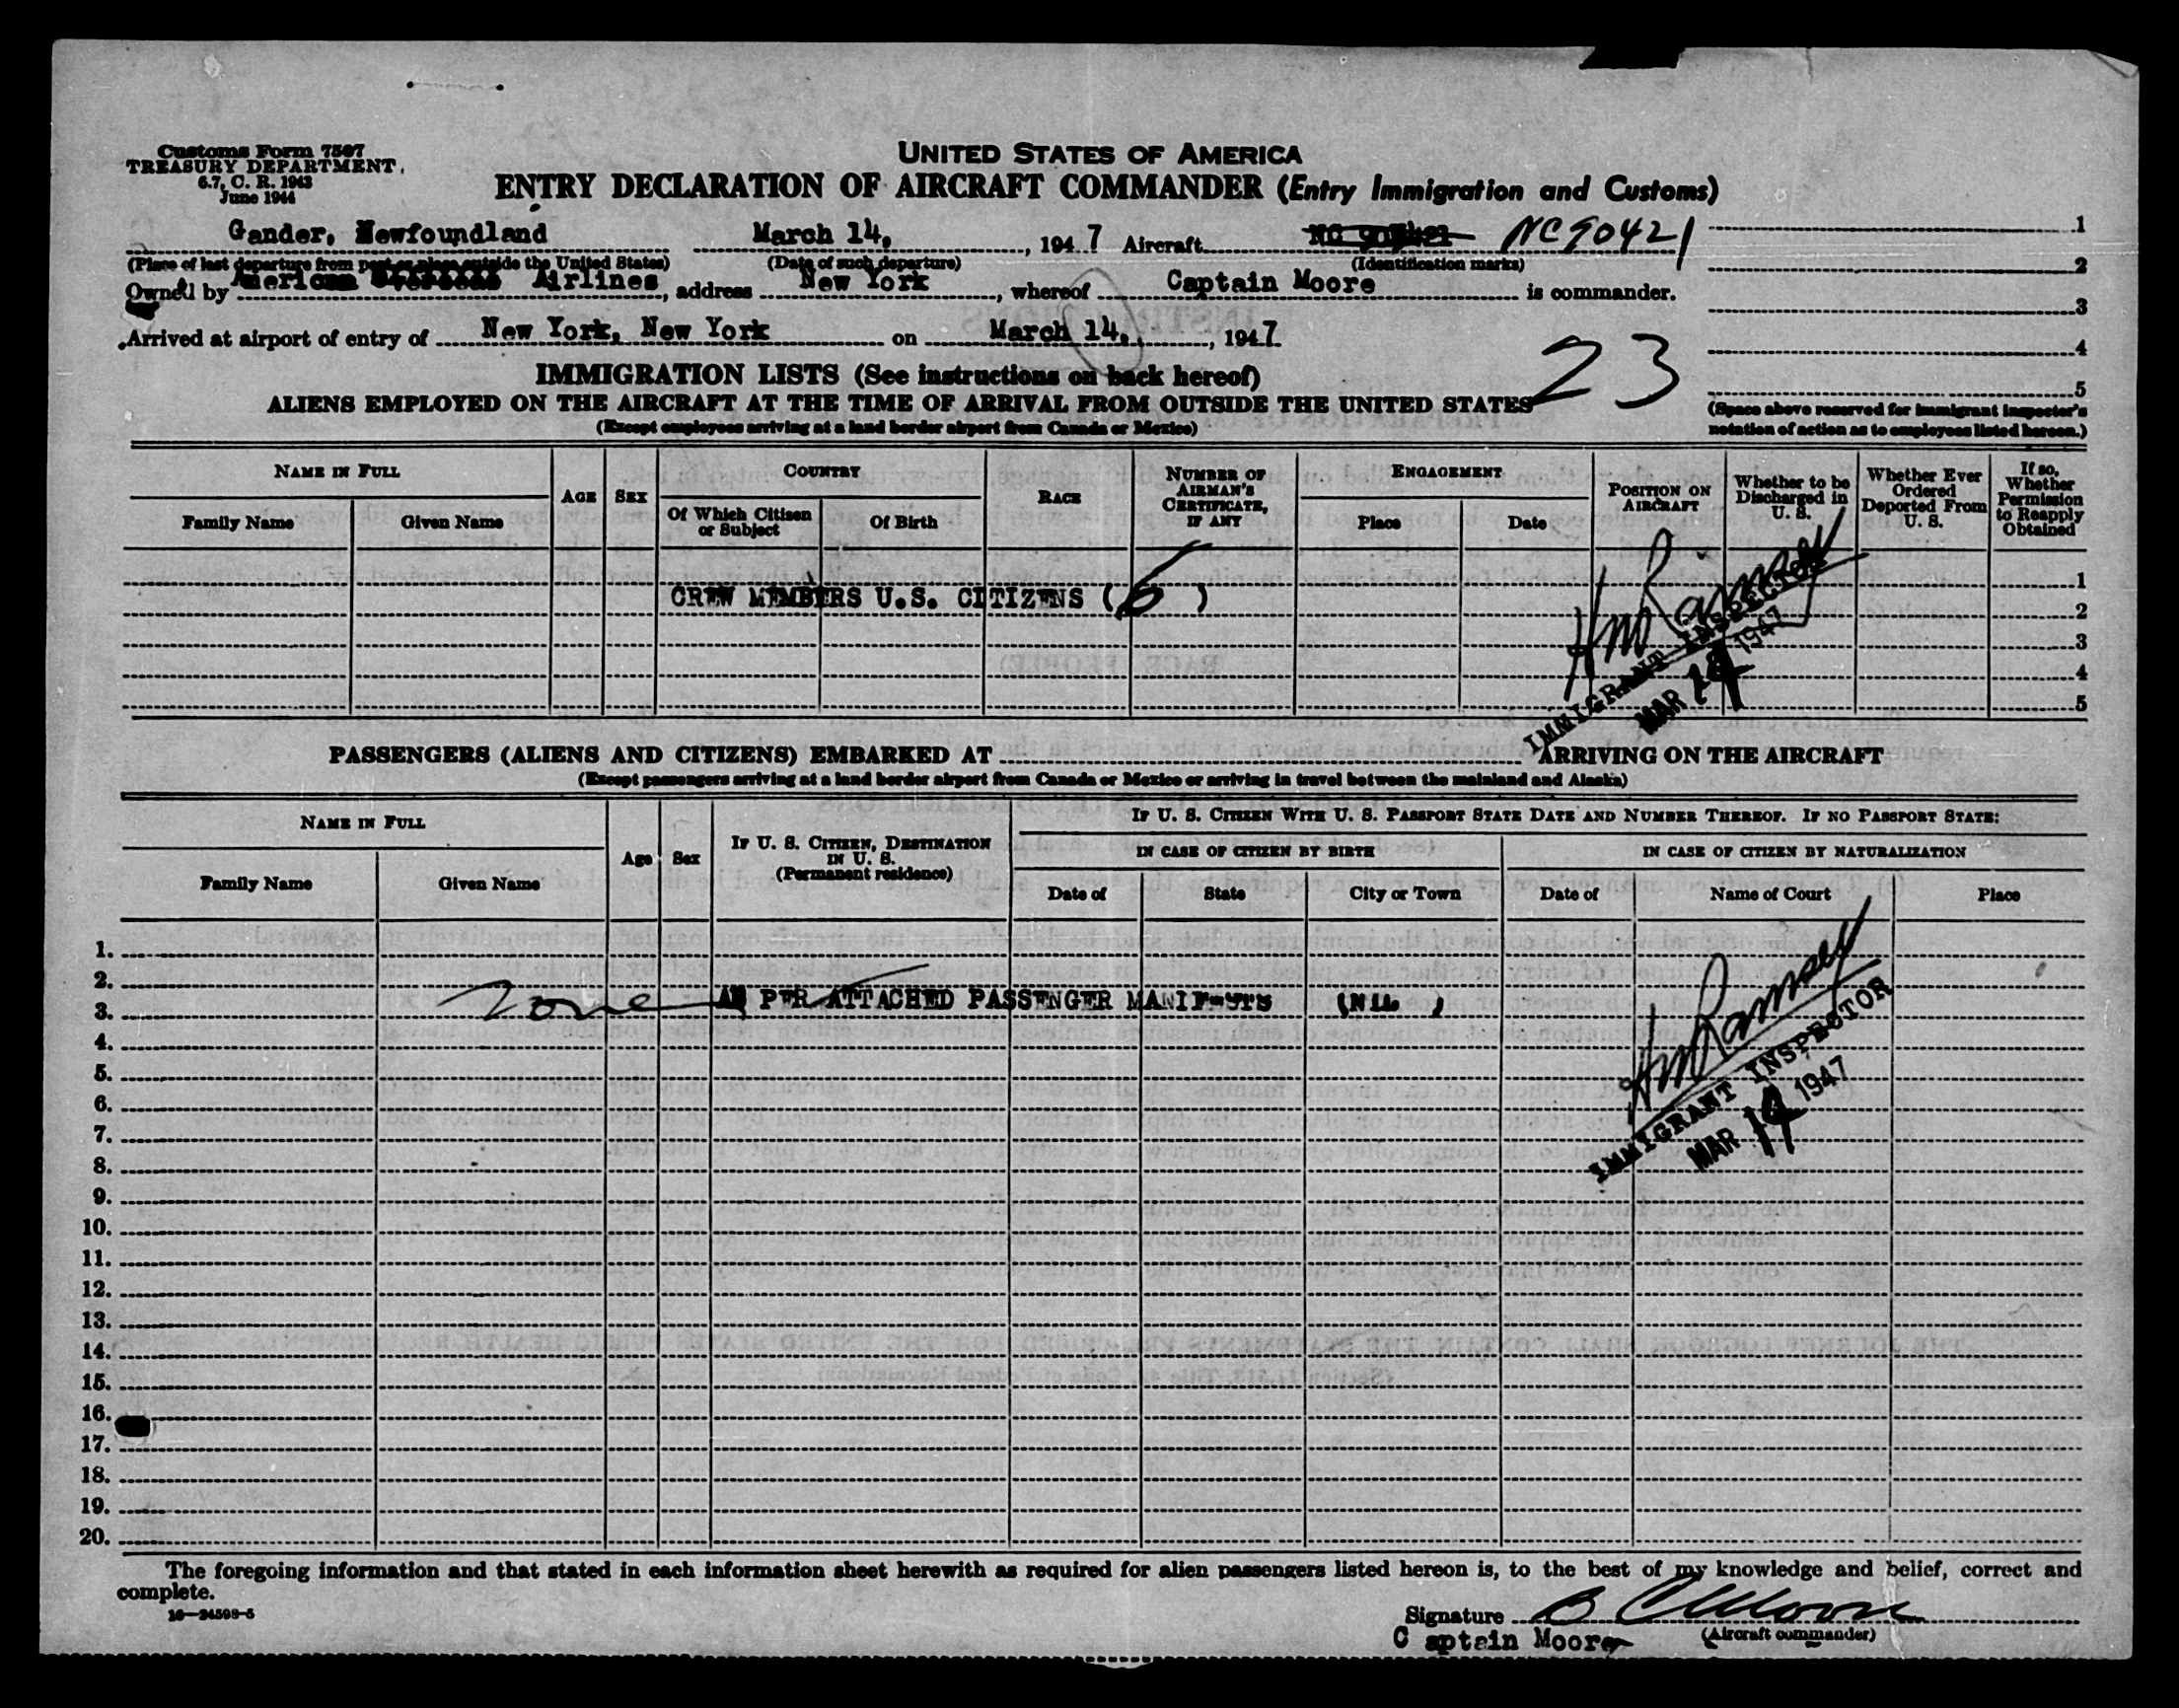 Customs Form 7507
TREASURY DEPARTMENT,
6.7, C. R. 1943
June 1944
UNITED STATES OF AMERICA
ENTRY DECLARATION OF AIRCRAFT COMMANDER (Entry Immigration and Customs)
Gander, Newfoundland March 14, 1947 Aircraft NC90421 1
(Place of last departure from port or place outside the United States) (Date of such departure) (Identification marks) 2
Owned by American Overseas Airlines, address New York, whereof Captain Moore is commander.
3
Arrived at airport of entry of New York, New York on March 14, 1947
4
23
IMMIGRATION LISTS (See instructions on back hereof)
5
ALIENS EMPLOYED ON THE AIRCRAFT AT THE TIME OF ARRIVAL FROM OUTSIDE THE UNITED STATES
(Space above reserved for immigrant inspector's notation of action as to employees listed hereon.)
(Except employees arriving at a land border airport from Canada or Mexico)
NAME IN FULL
Family Name Given Name
AGE SEX
COUNTRY
Of Which Citizen or Subject Of Birth
RACE
NUMBER OF AIRMAN'S CERTIFICATE, IF ANY
ENGAGEMENT
Place Date
POSITION ON AIRCRAFT
Whether to be Discharged in U. S.
Whether Ever Ordered Deported From U. S.
If so, Whether Permission to Reapply Obtained
1
CREW MEMBERS U.S. CITIZENS (6)
2
3
4
5
HM Ramsey
IMMIGRANT INSPECTOR
MAR 14 1947
PASSENGERS (ALIENS AND CITIZENS) EMBARKED AT ARRIVING ON THE AIRCRAFT
(Except passengers arriving at a land border airport from Canada or Mexico or arriving in travel between the mainland and Alaska)
NAME IN FULL
Family Name Given Name
Age Sex
IF U. S. CITIZEN, DESTINATION IN U. S.
(Permanent residence)
IF U. S. CITIZEN WITH U. S. PASSPORT STATE DATE AND NUMBER THEREOF. IF NO PASSPORT STATE:
IN CASE OF CITIZEN BY BIRTH
Date of State City or Town
IN CASE OF CITIZEN BY NATURALIZATION
Date of Name of Court Place
1.
2.
3. None AS PER ATTACHED PASSENGER MANIFESTS (NIL )
4.
5.
6.
7.
8.
9.
10.
11.
12.
13.
14.
15.
16.
17.
18.
19.
20.
HM Ramsey
IMMIGRANT INSPECTOR
MAR 14 1947
The foregoing information and that stated in each information sheet herewith as required for alien passengers listed hereon is, to the best of my knowledge and belief, correct and
complete.
16—24598-5
Signature B C Moore
Captain Moore (Aircraft commander)